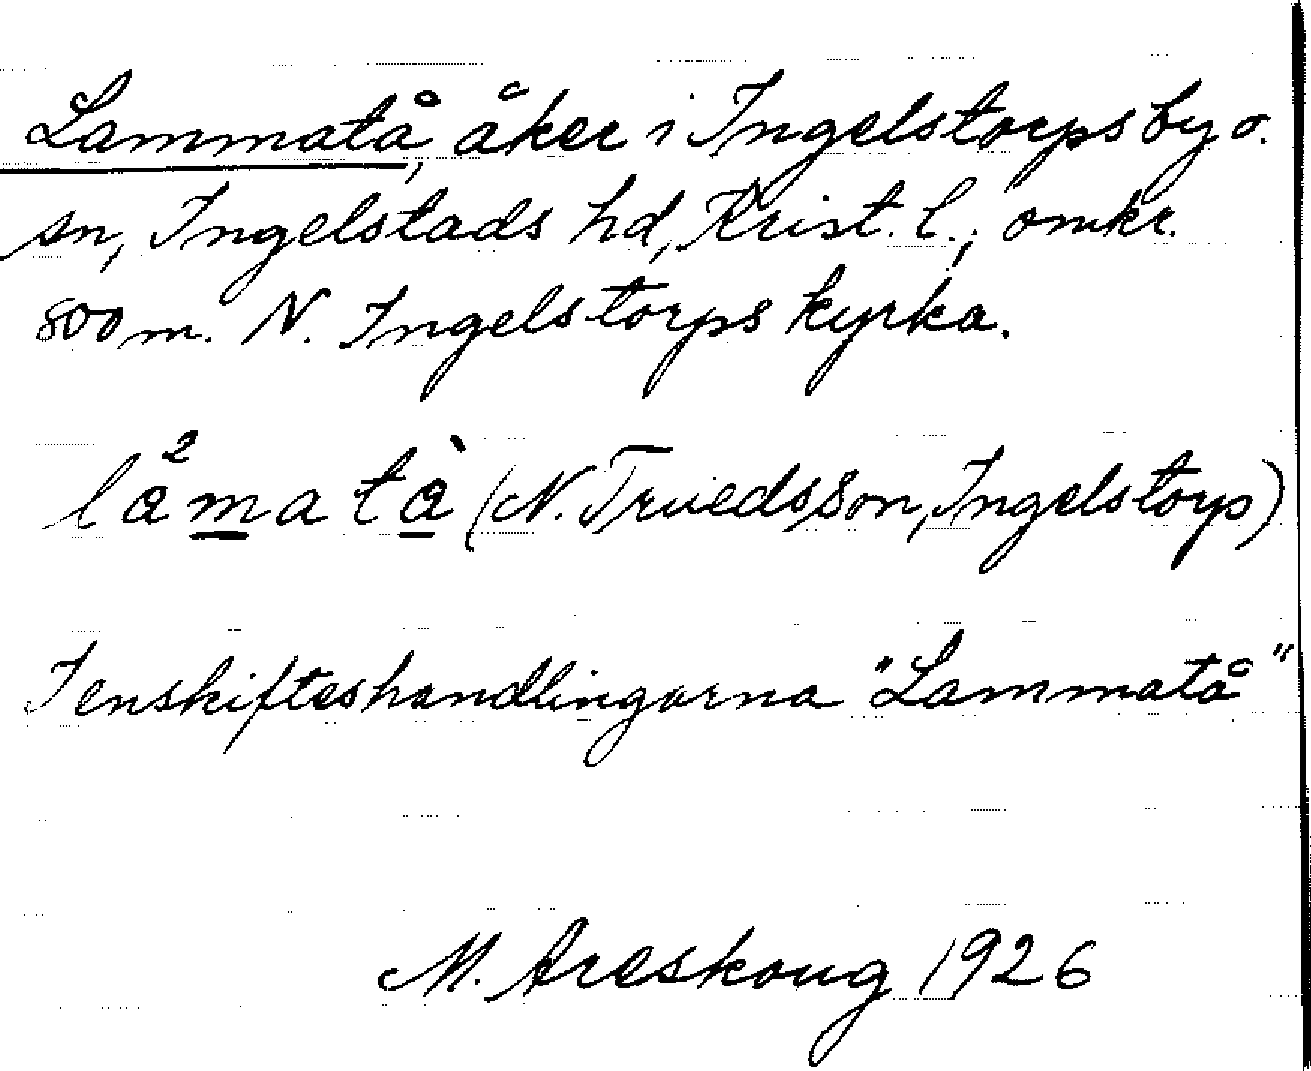 Lammatå, åker i Ingelstorps by o.
sn, Ingelstads hd, Krist. l.; omkr.
800 m. N. Ingelstorps kyrka.
lamata (N. Truedsson, Ingelstorp)
I enskifteshandlingarna "Lammatå"
M. Areskoug 1926